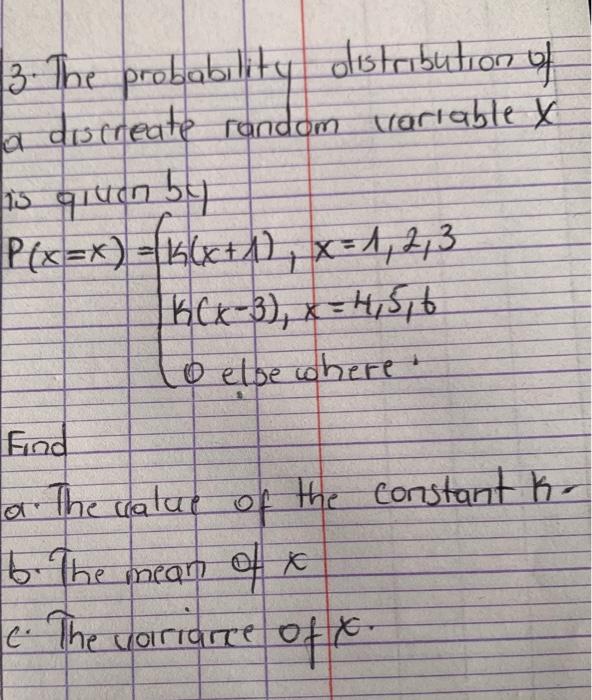 3. The probability distribution of
a discreate random variable X
is given by
P(x=x) = { k(x+1), x=1,2,3
k(x-3), x=4,5,6
0 elsewhere.
Find
a. The value of the constant k.
b. The mean of x
c. The variance of x.